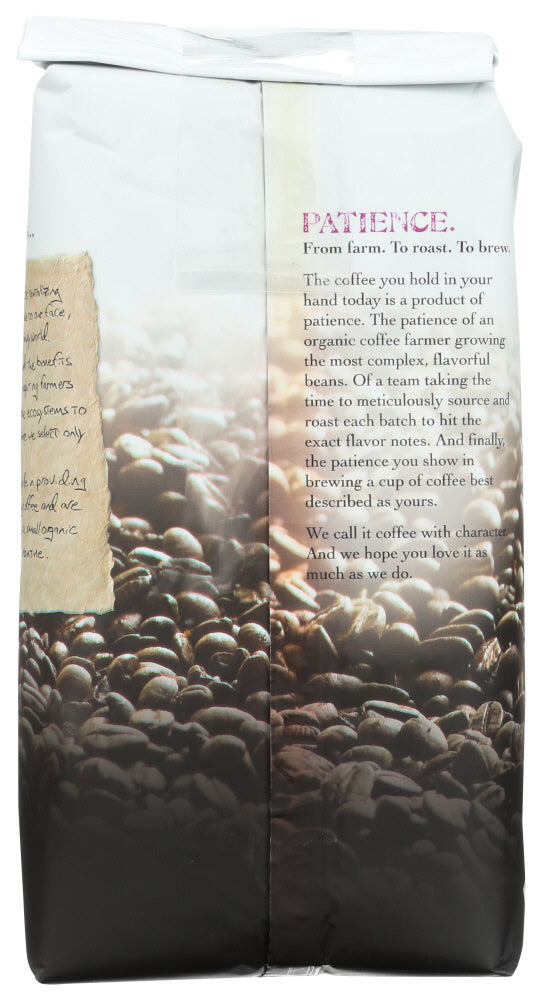 PATIENCE.
From farm. To roast. To brew.
The coffee you hold in your
hand today is a product of
patience. The patience of an
organic coffee farmer growing
the most complex, flavorful
beans. Of a team taking the
time to meticulously source and
roast each batch to hit the
exact flavor notes. And finally,
the patience you show in
brewing a cup of coffee best
described as yours.
We call it coffee with character.
And we hope you love it as
much as we do.
our face,
world.
the benefits
farmers
ecosystems to
we select only
in providing
and are
small organic